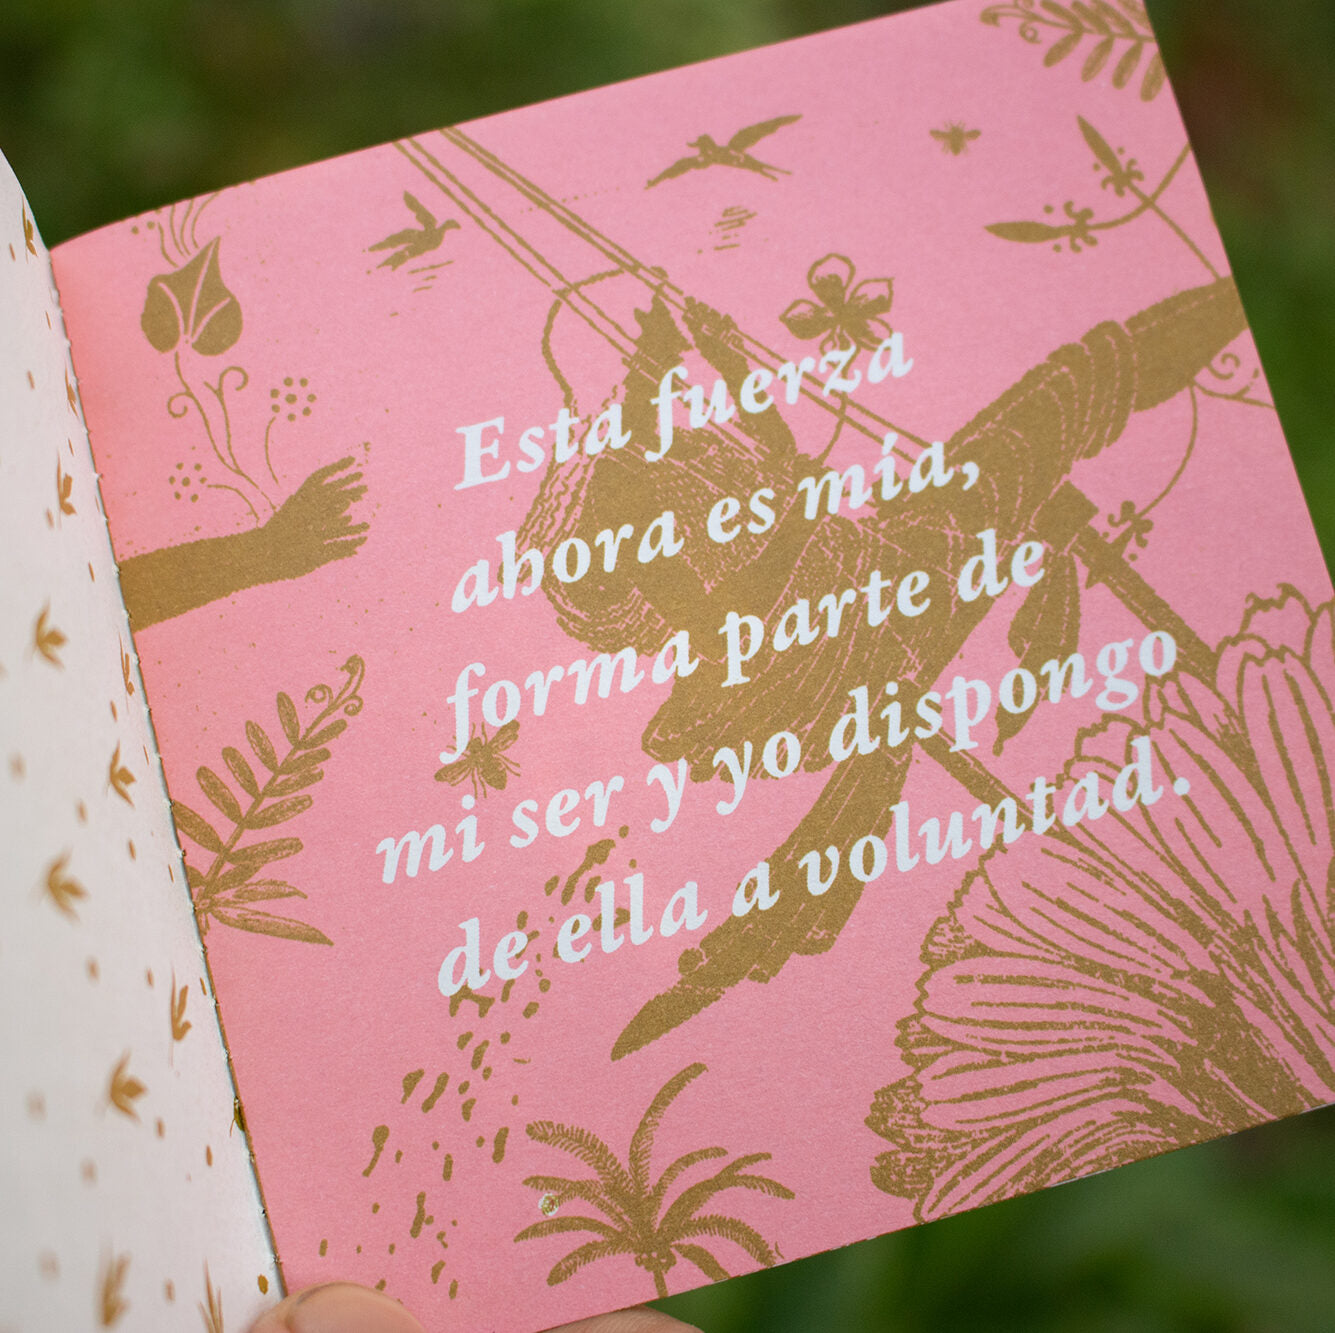 Esta fuerza
ahora es mía,
forma parte de
mi ser y yo dispongo
de ella a voluntad.